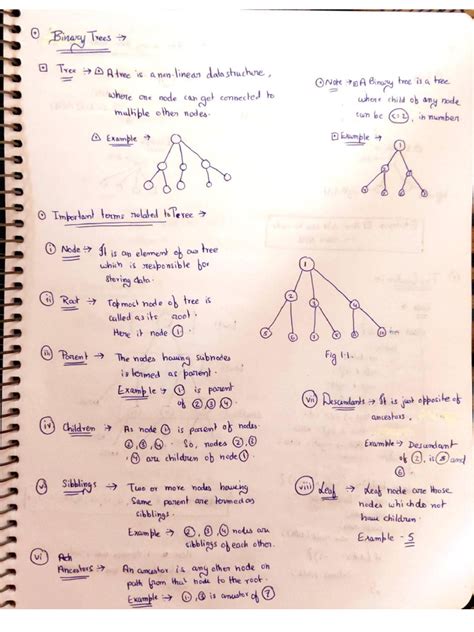 Binary Trees →
Tree → A tree is a non-linear data structure,
where one node can get connected to
multiple other nodes.
Example →
Note → A Binary tree is a tree
where child of any node
can be <=2, in number
Example →
1
Important terms related to Tree →
i Node → It is an element of our tree
which is responsible for
storing data.
ii Root → Topmost node of tree is
called as its root.
Here it node 1.
1
2 3 4
Fig 1.1.
iii Parent → The nodes having subnodes
is termed as parent.
Example → 1 is parent
of 2, 3, 4
iv Children → As node 1 is parent of nodes
2, 3, 4. So, nodes 2, 3,
4 are children of node 1.
v Sibblings → Two or more nodes having
Same parent are termed as
sibblings.
Example → 2, 3, 4 nodes are
sibblings of each other.
vi Ancestors → An ancestor is any other node on
path from that node to the root.
Example → 1, 3 is ancestor of 7
vii Descendants → It is just opposite of
ancestors.
Example → Descendant
of 2, is 5 and
6
viii Leaf → Leaf node are those
nodes which do not
have children.
Example - 5